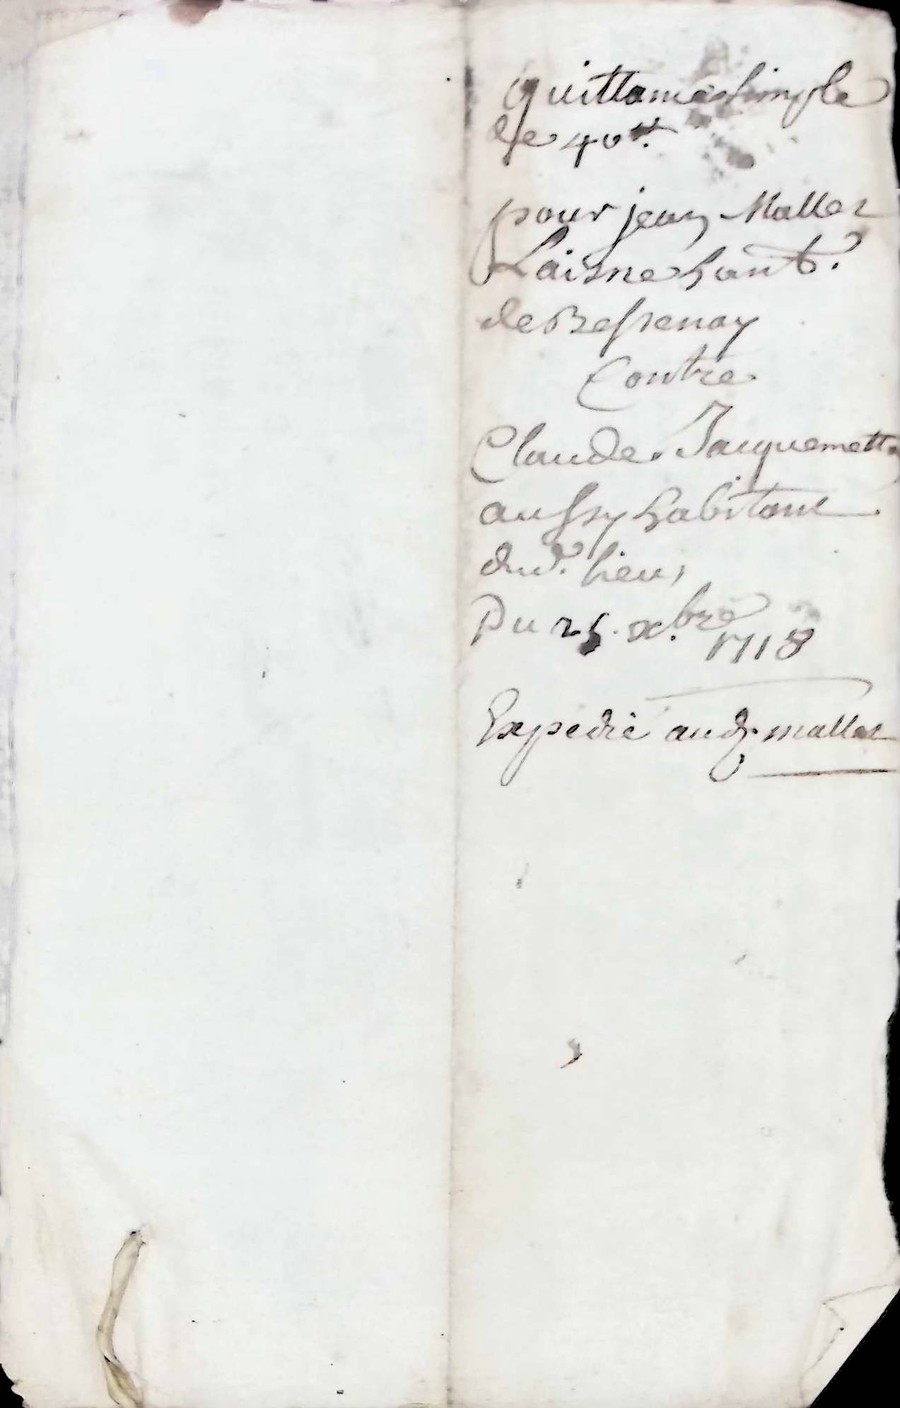 Quittance simple
de 40tt.
pour jean Mallet
Laisne habnt.
de Bessenay
Contre
Claude Jacquemetto
aussy habitant
dud. lieu,
Du 25. xbre
1718
Expedié aud. mallet